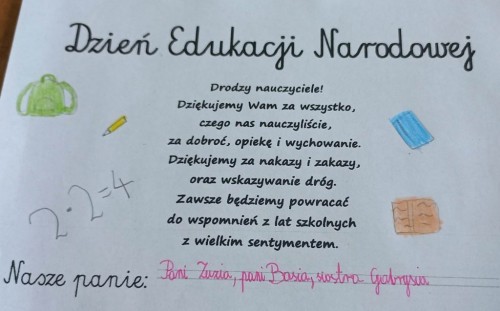 Dzień Edukacji Narodowej
Drodzy nauczyciele!
Dziękujemy Wam za wszystko,
czego nas nauczyliście,
za dobroć, opiekę i wychowanie.
Dziękujemy za nakazy i zakazy,
oraz wskazywanie dróg.
Zawsze będziemy powracać
do wspomnień z lat szkolnych
z wielkim sentymentem.
2·2=4
Nasze panie: Pani Zuzia, pani Basia, siostra Gabrysia